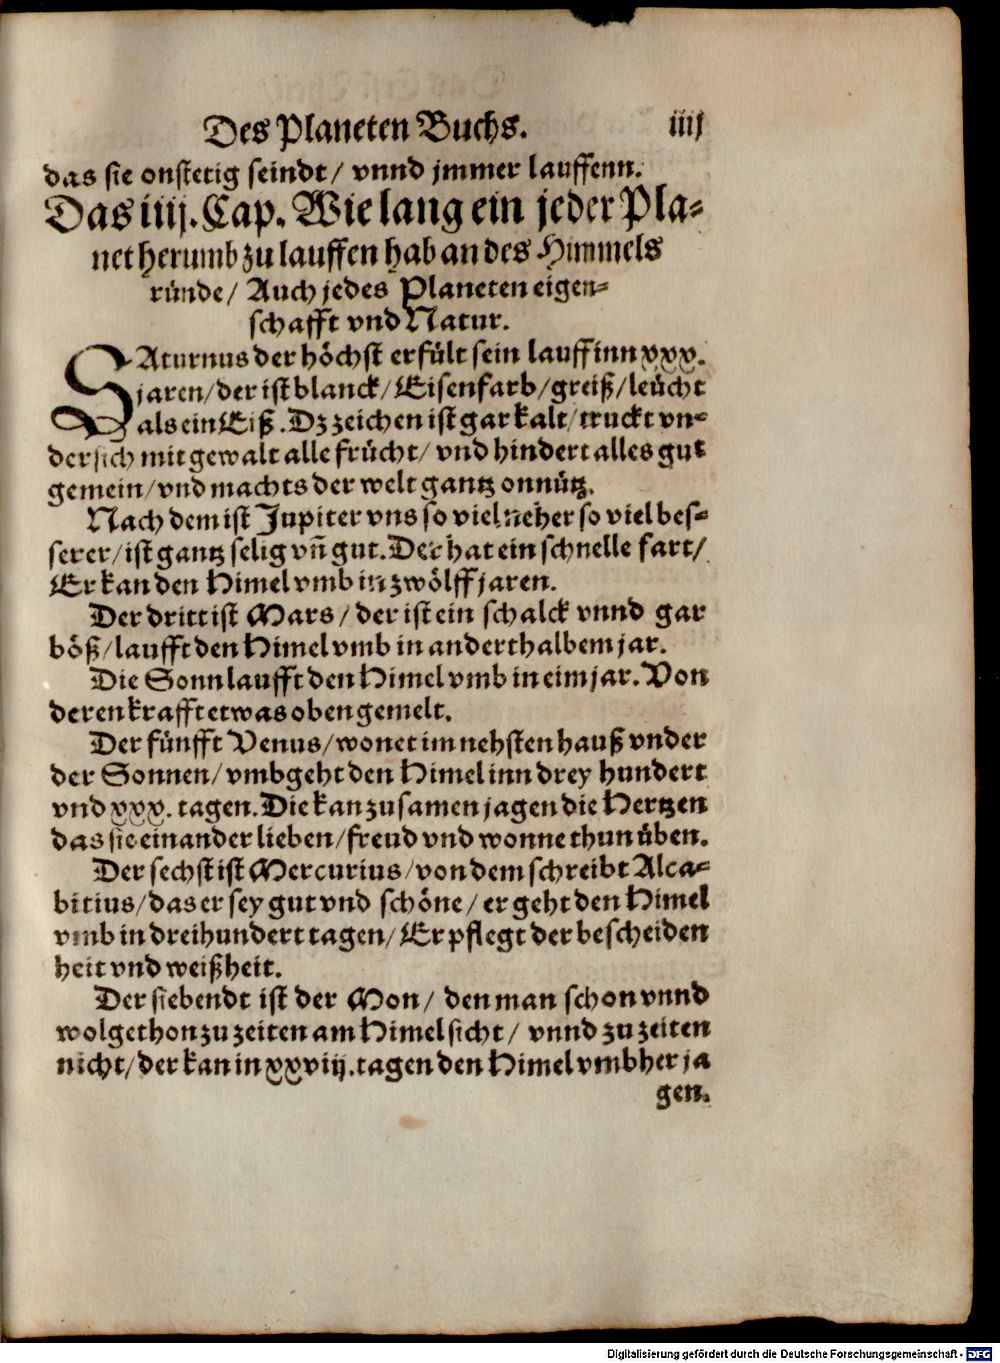 Des Planeten Buchs. iiij
das sie onstetig seindt/ vnnd jmmer lauffenn.
Das iiij. Cap. Wie lang ein jeder Pla-
net herumb zu lauffen hab an des Himmels
ründe/ Auch jedes Planeten eigen-
schafft vnd Natur.
SAturnus der höchst erfült sein lauff inn xxx.
jaren/ der ist blanck/ Eisenfarb/ greiß/ leücht
als ein Eiß. Dz zeichen ist gar kalt/ truckt vn-
der sich mit gewalt alle frücht/ vnd hindert alles gut
gemein/ vnd machts der welt gantz onnütz.
Nach dem ist Jupiter vns so viel neher so viel bes-
serer/ ist gantz selig vñ gut. Der hat ein schnelle fart/
Er kan den Himel vmb in zwölff jaren.
Der dritt ist Mars/ der ist ein schalck vnnd gar
böß/ laufft den Himel vmb in anderthalbem jar.
Die Sonn laufft den Himel vmb in eim jar. Von
deren krafft etwas oben gemelt.
Der fünfft Venus/ wonet im nehsten hauß vnder
der Sonnen/ vmbgeht den Himel inn drey hundert
vnd xxx. tagen. Die kan zusamen jagen die Hertzen
das sie einander lieben/ freud vnd wonne thun üben.
Der sechst ist Mercurius/ von dem schreibt Alca-
bitius/ das er sey gut vnd schöne/ er geht den Himel
vmb in dreihundert tagen/ Er pflegt der bescheiden
heit vnd weißheit.
Der siebendt ist der Mon/ den man schon vnnd
wolgethon zu zeiten am Himel sicht/ vnnd zu zeiten
nicht/ der kan in xxviij. tagen den Himel vmbher ja
gen.
Digitalisierung gefördert durch die Deutsche Forschungsgemeinschaft - DFG